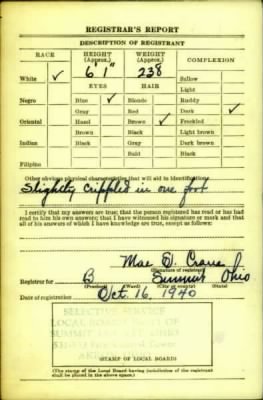 REGISTRAR'S REPORT
DESCRIPTION OF REGISTRANT
RACE HEIGHT (Approx.) WEIGHT (Approx.) COMPLEXION
6' 1" 238 Sallow
White ✓ Light
EYES HAIR
Negro Blue ✓ Blonde Ruddy
Gray Red Dark ✓
Oriental Hazel Brown ✓ Freckled
Brown Black Light brown
Indian Black Gray Dark brown
Bald Black
Filipino
Other obvious physical characteristics that will aid in identification
Slightly crippled in one foot
I certify that my answers are true; that the person registered has read or has had
read to him his own answers; that I have witnessed his signature or mark and that
all of his answers of which I have knowledge are true, except as follows:
Mae D. Crane
(Signature of registrar)
Registrar for B Summit Ohio
(Precinct) (State)
Date of registration Oct. 16, 1940
SELECTIVE SERVICE
LOCAL BOARD
SUMMIT
Tower
(STAMP OF LOCAL BOARD)
(The stamp of the Local Board having jurisdiction of the registrant
shall be placed in the above space.)